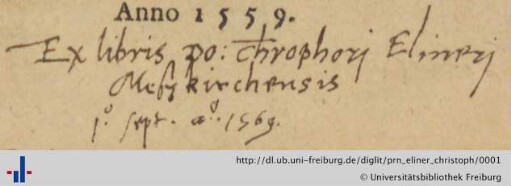 Anno 1559.
Ex libris po: chrophorj Elinerj
Meßkirchensis
1.° sept. a.° 1569.
http://dl.ub.uni-freiburg.de/diglit/prn_eliner_christoph/0001
© Universitätsbibliothek Freiburg